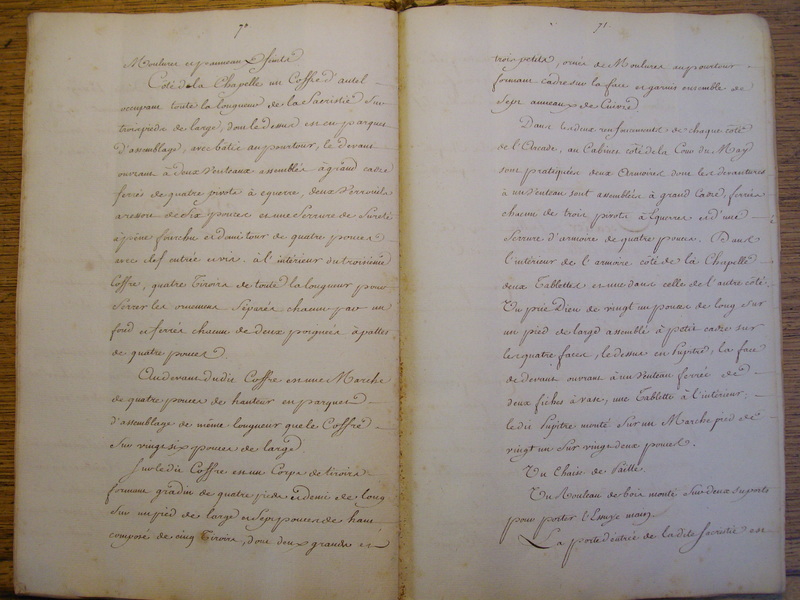 70
Moulures et panneaux Enfuité
Coté de la Chapelle un Coffre d'autel
occupant toute la longueur de la Sacristie Sur
trois pieds de large, dont le dessus est en parquet
d'assemblage, avec batis au pourtour, le devant
ouvrant à deux Venteaux assemblés à grand cadre
ferrés de quatre pivots à equerre, deux Verrouils
a ressort de Six pouces et une Serrure de Sureté
à pêne fourchu et demi tour de quatre pouces
avec clef entrée et vis. à l'intérieur du troisième
Coffre, quatre Tiroirs de toute la longueur pour
Serrer les ornemens Séparés chacun par un
fond et ferrés chacun de deux poignées à pattes
de quatre pouces.
Au devant dudit Coffre est une Marche
de quatre pouces de hauteur en parquet
d'assemblage de même longueur que le Coffre
Sur vingt six pouces de large
Sur le dit Coffre est un Corps de tiroirs
formant gradin de quatre pieds et demi de long
Sur un pied de large et Sept pouces de haut
composé de cinq Tiroirs, dont deux grands et
71
trois petits, ornés de Moulures au pourtour
formant cadre sur la face et garnis ensemble de
Sept anneaux de Cuivre
Dans les deux renfoncements de chaque côté
de l'Arcade, au Cabinet côté de la Cour du May
sont pratiquées deux Armoires dont les devantures
à un Venteau sont assemblés à grand Cadre, ferrés
chacune de trois pivots à Equerres et d'une
Serrure d'armoire de quatre pouces. Dans
l'intérieur de l'armoire côté de la Chapelle
deux Tablettes et une dans celle de l'autre côté.
Un prie Dieu de vingt un pouces de long sur
un pied de large assemblé à petit cadre sur
les quatre faces, le dessus en Pupitre, la face
de devant ouvrant à un Venteau ferrée de
deux fiches à vase, une Tablette à l'intérieur;
le dit Pupitre monté Sur un Marche pied de
vingt un Sur vingt deux pouces.
Un Chaise de Paille.
Un Rouleau de bois monté Sur deux Suports
pour porter l'Essuye mains
La porte d'entrée de la dite Sacristie est